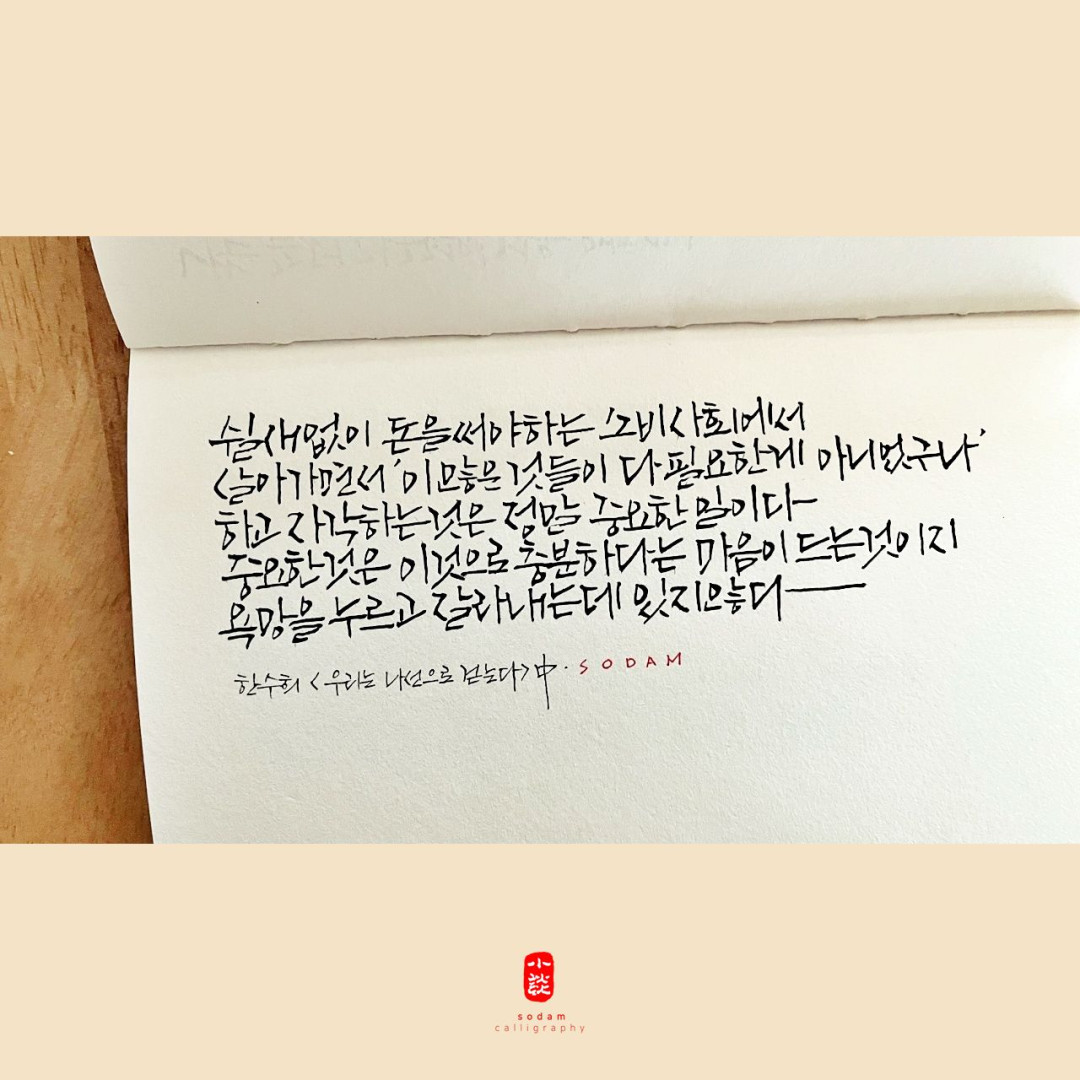 쉴새없이 돈을써야하는 소비사회에서
살아가면서 '이많은것들이 다 필요한게 아니었구나'
하고 자각하는것은 정말 중요한일이다
중요한것은 이것으로 충분하다는 마음이 드는것이지
욕망을 누르고 잘라내는데 있지않다
한수희 <우리는 나선으로 걷는다> 中 · SODAM
小談
sodam
calligraphy